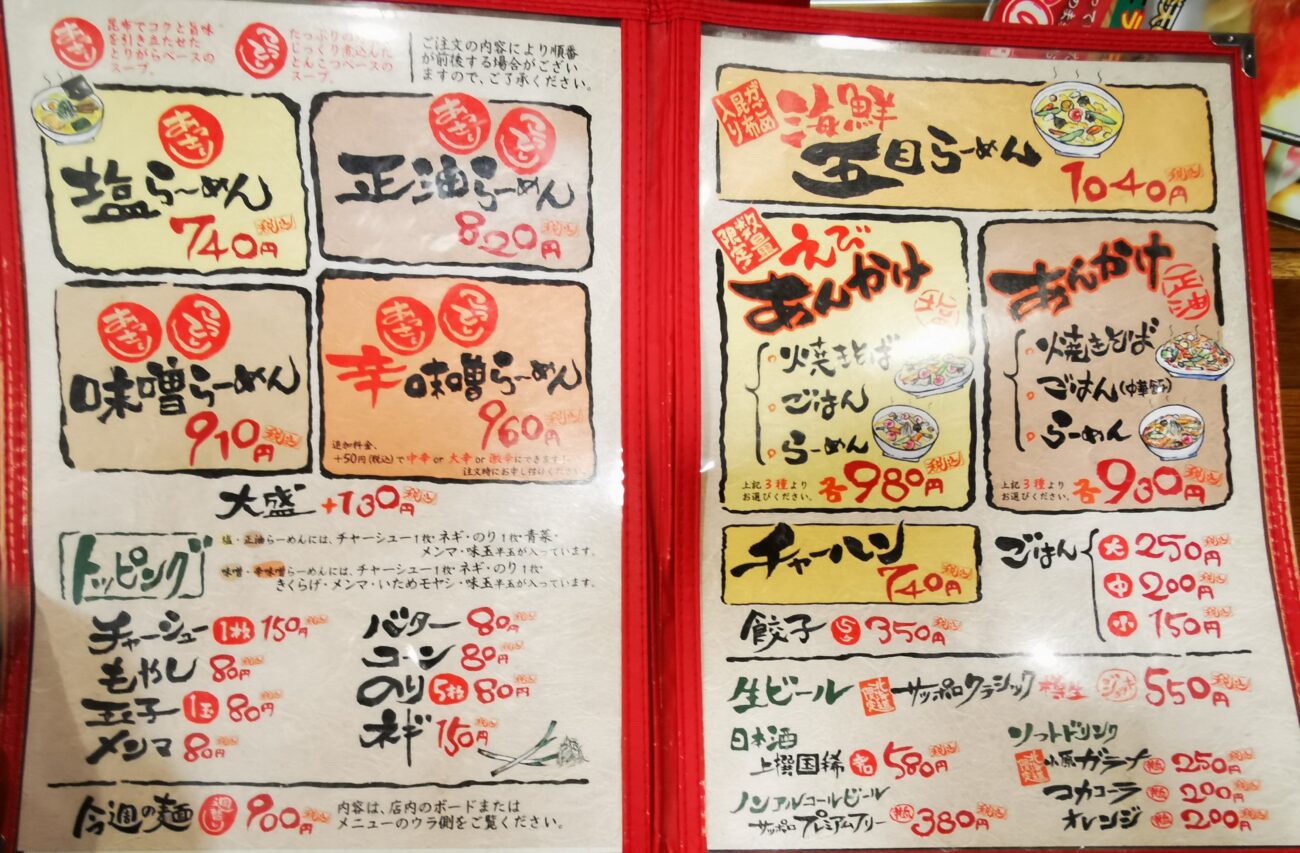 あっさり
昆布でコクと旨味
を引き立たせた
とりがらベースの
スープ。
こってり
たっぷりの
じっくり煮込んだ
とんこつベースの
スープ。
ご注文の内容により順番
が前後する場合がござい
ますので、ご了承ください。
あっさり
塩らーめん
740円 税込
あっさり こってり
正油らーめん
820円 税込
あっさり こってり
味噌らーめん
910円 税込
あっさり こってり
辛味噌らーめん
960円 税込
追加料金、
+50円(税込)で中辛 or 大辛 or 激辛にできます!
注文時にお申し付けください。
大盛 +130円 税込
トッピング
塩・正油らーめんには、チャーシュー1枚・ネギ・のり1枚・青菜・
メンマ・味玉半玉が入っています。
味噌・辛味噌らーめんには、チャーシュー1枚・ネギ・のり1枚・
きくらげ・メンマ・いためモヤシ・味玉半玉が入っています。
チャーシュー 1枚 150円 税込
もやし 80円 税込
玉子 1玉 80円 税込
メンマ 80円 税込
バター 80円 税込
コーン 80円 税込
のり 5枚 80円 税込
ネギ 150円 税込
今週の麺 週替り 900円 税込
内容は、店内のボードまたは
メニューのウラ側をご覧ください。
がごめ昆布入り
海鮮
五目らーめん
1040円 税込
数量限定
えび
あんかけ
塩
焼きそば
ごはん
らーめん
上記3種より
お選びください。
各980円 税込
あんかけ
正油
焼きそば
ごはん(中華飯)
らーめん
上記3種より
お選びください。
各930円 税込
チャーハン
740円 税込
ごはん
大 250円 税込
中 200円 税込
小 150円 税込
餃子 5コ 350円 税込
生ビール 北海道限定 サッポロクラシック 樽生 ジョッキ 550円 税込
日本酒
上撰国稀 580円 税込
ノンアルコールビール
サッポロ プレミアムフリー 瓶 380円 税込
ソフトドリンク
北海道限定 小原ガラナ 瓶 250円 税込
コカコーラ 瓶 200円 税込
オレンジ 瓶 200円 税込